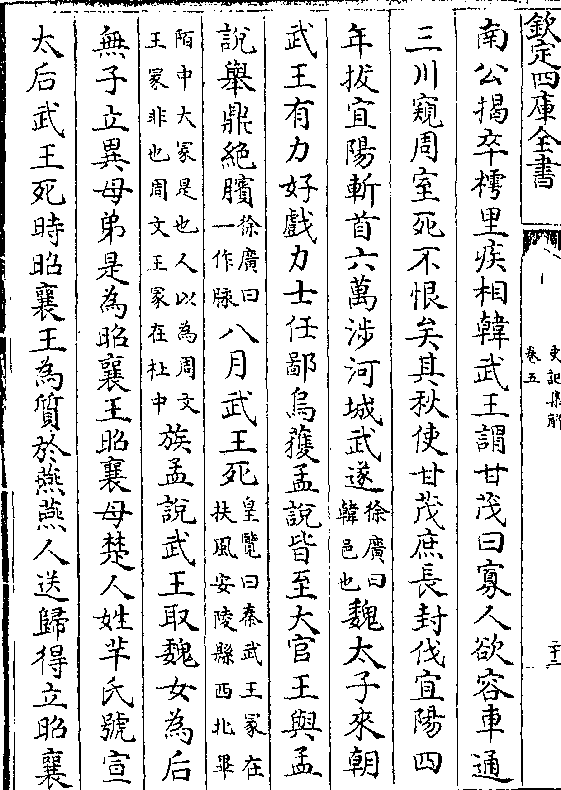 欽定四庫全書
史記集解
卷五
南公揭卒樗里疾相韓武王謂甘茂曰寡人欲容車通
三川窺周室死不恨矣其秋使甘茂庶長封伐宜陽四
年拔宜陽斬首六萬涉河城武遂徐廣曰韓邑也魏太子來朝
武王有力好戲力士任鄙烏獲孟說皆至大官王與孟
說舉鼎絶臏徐廣曰一作脉八月武王死皇覽曰秦武王冢在扶風安陵縣西北畢
陌中大冢是也人以為周文王冢非也周文王冢在杜中族孟說武王取魏女為后
無子立異母弟是為昭襄王昭襄母楚人姓羋氏號宣
太后武王死時昭襄王為質於燕燕人送歸得立昭襄